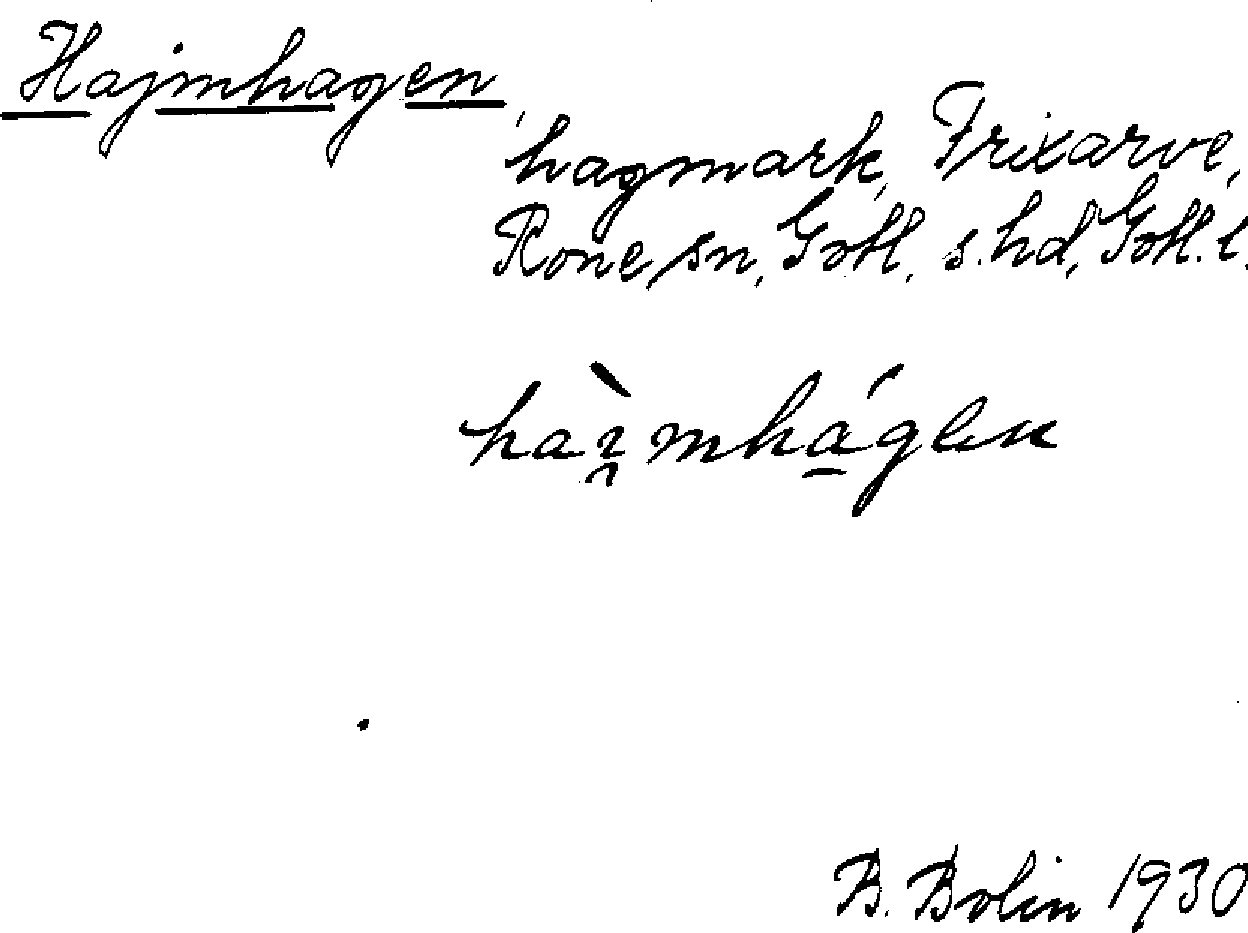 Hajmhagen,
hagmark, Frixarve,
Rone sn, Gotl. s. hd, Gotl. l.
haı̯̀mhá̱gen
B. Bolin 1930